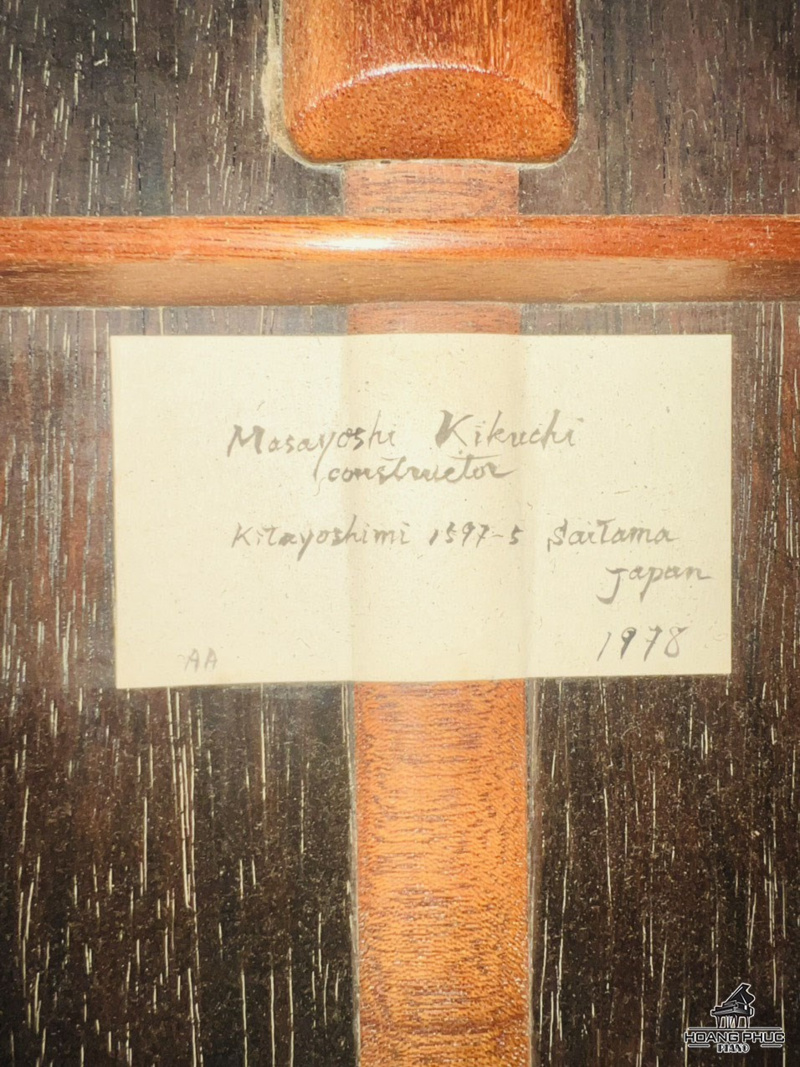 Masayoshi Kikuchi
constructor
Kitayoshimi 1597-5 Saitama
Japan
1978
AA
HOANG PHUC
PIANO